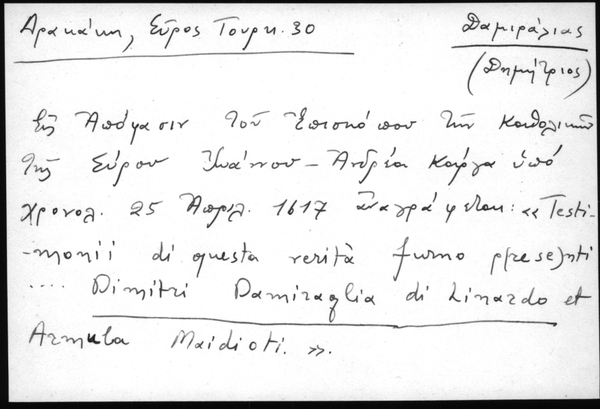 Δρακάκη, Σύρος Τουρκ. 30
Δαμιράλιας
(Δημήτριος)
Εἰς Ἀπόφασιν τοῦ Ἐπισκόπου τῶν Καθολικῶν
τῆς Σύρου Ἰωάννου - Ἀνδρέα Κάργα ὑπό
χρονολ. 25 Ἀπριλ. 1617 ἀναγράφεται: «Testi-
-monii di questa verità furno p(rese)nti
.... Dimitri Damiraglia di Linardo et
Armula Maidioti.».